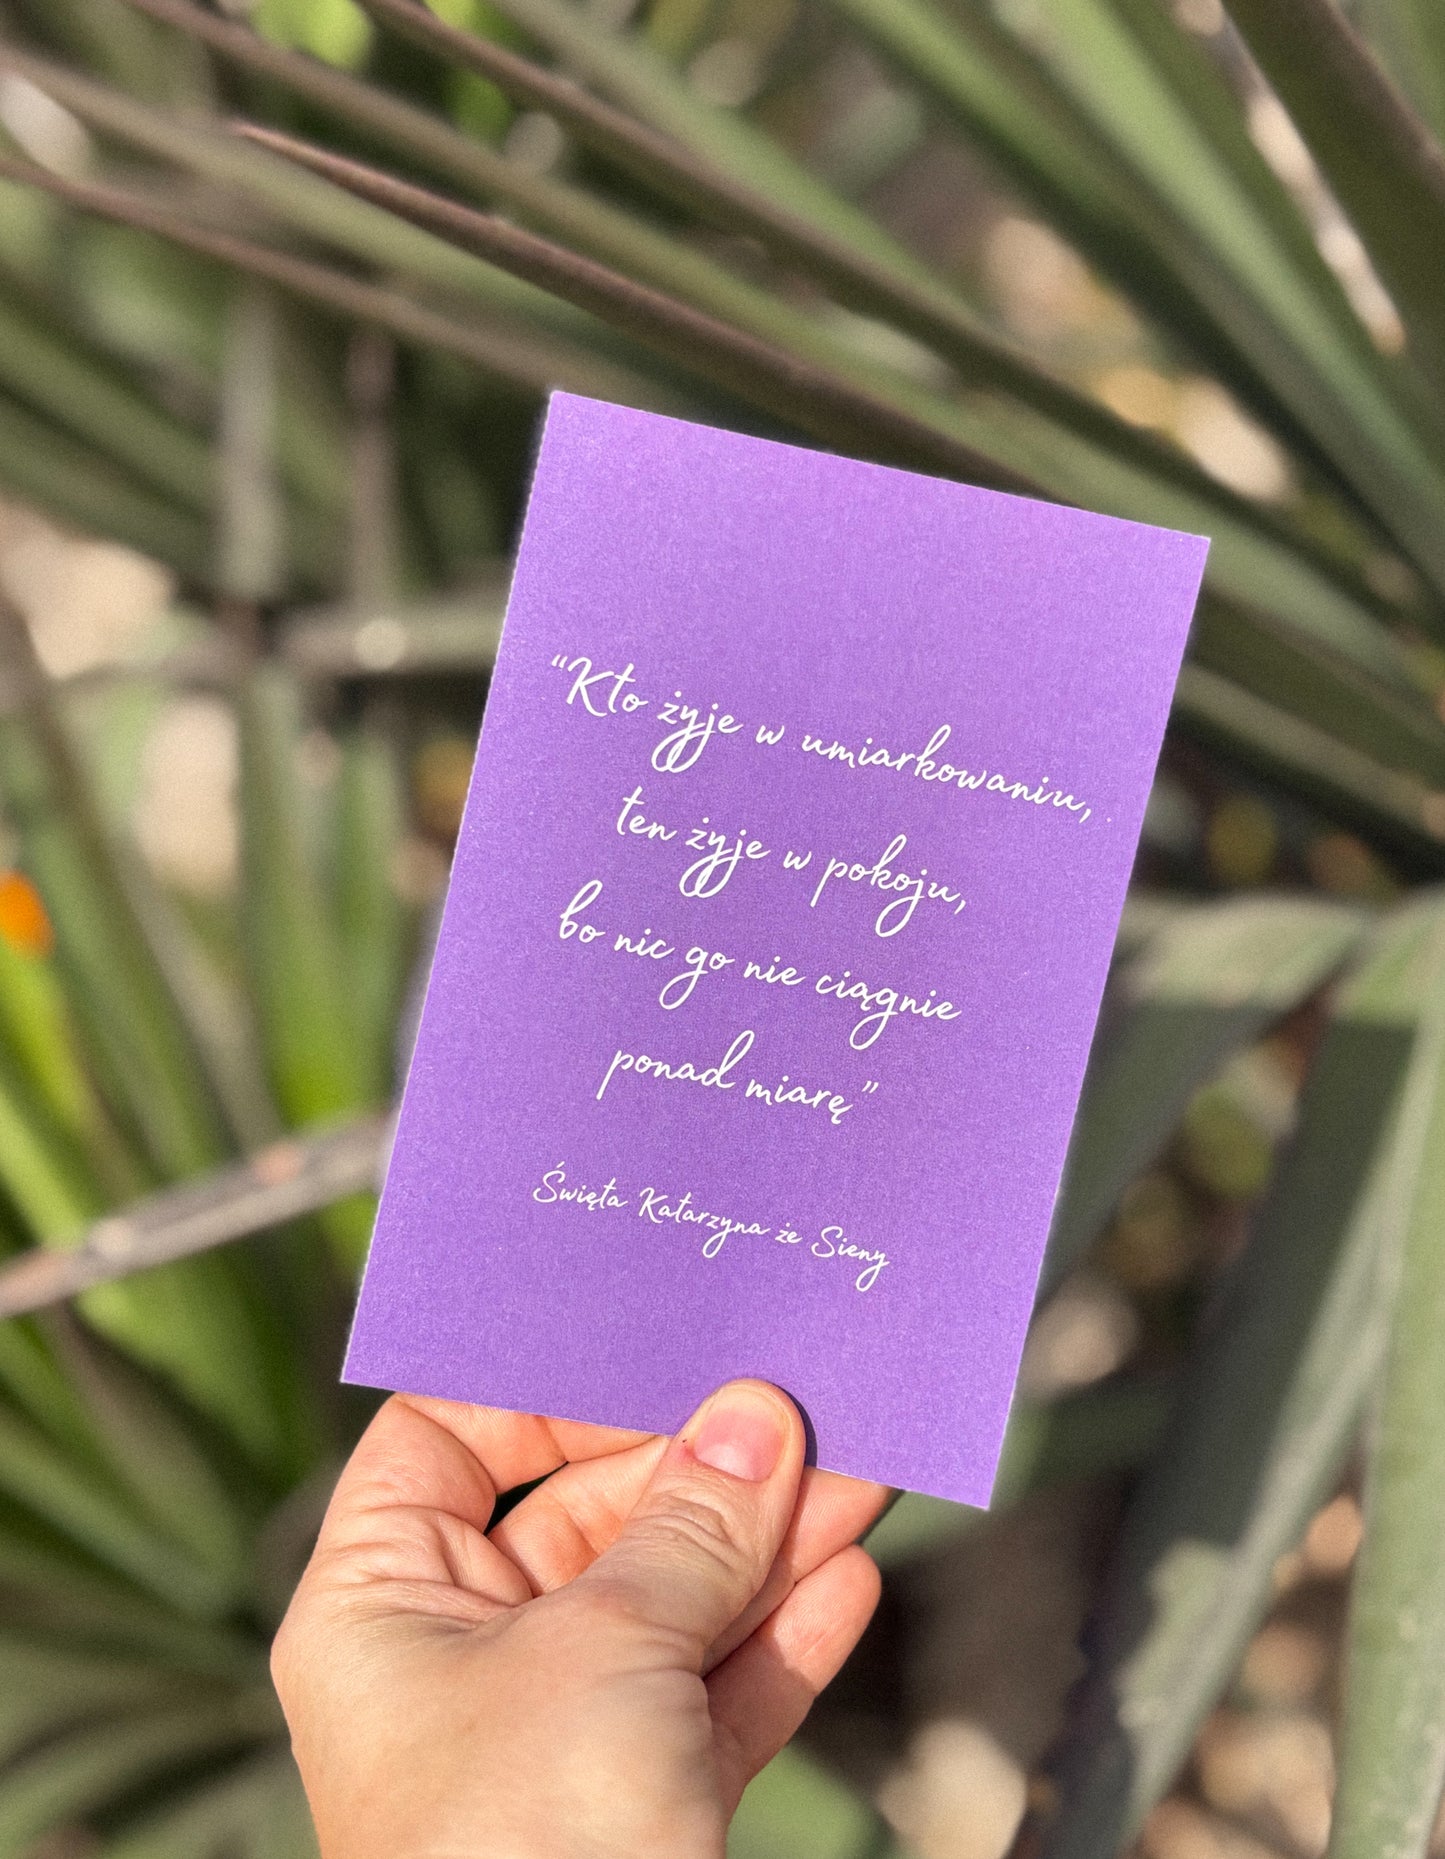 “Kto żyje w umiarkowaniu,
ten żyje w pokoju,
bo nic go nie ciągnie
ponad miarę”
Święta Katarzyna że Sieny